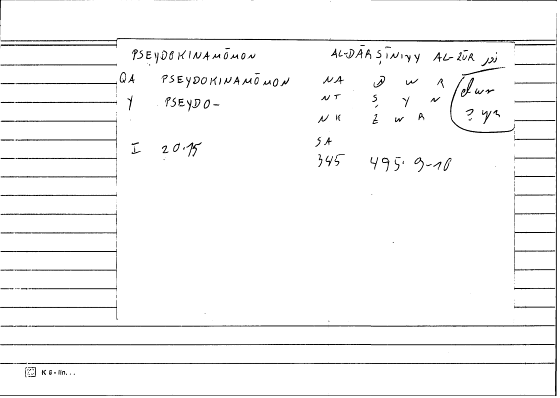 PSEYDOKINAMŌMON AL-DĀRṢĪNIYY AL-ZŪR
QA PSEYDOKINAMŌMON NA D W R
Y PSEYDO- NT Ṣ Y N
NK Z W R
I 20.15 SA
345 495.9-10
K 6 - lin...